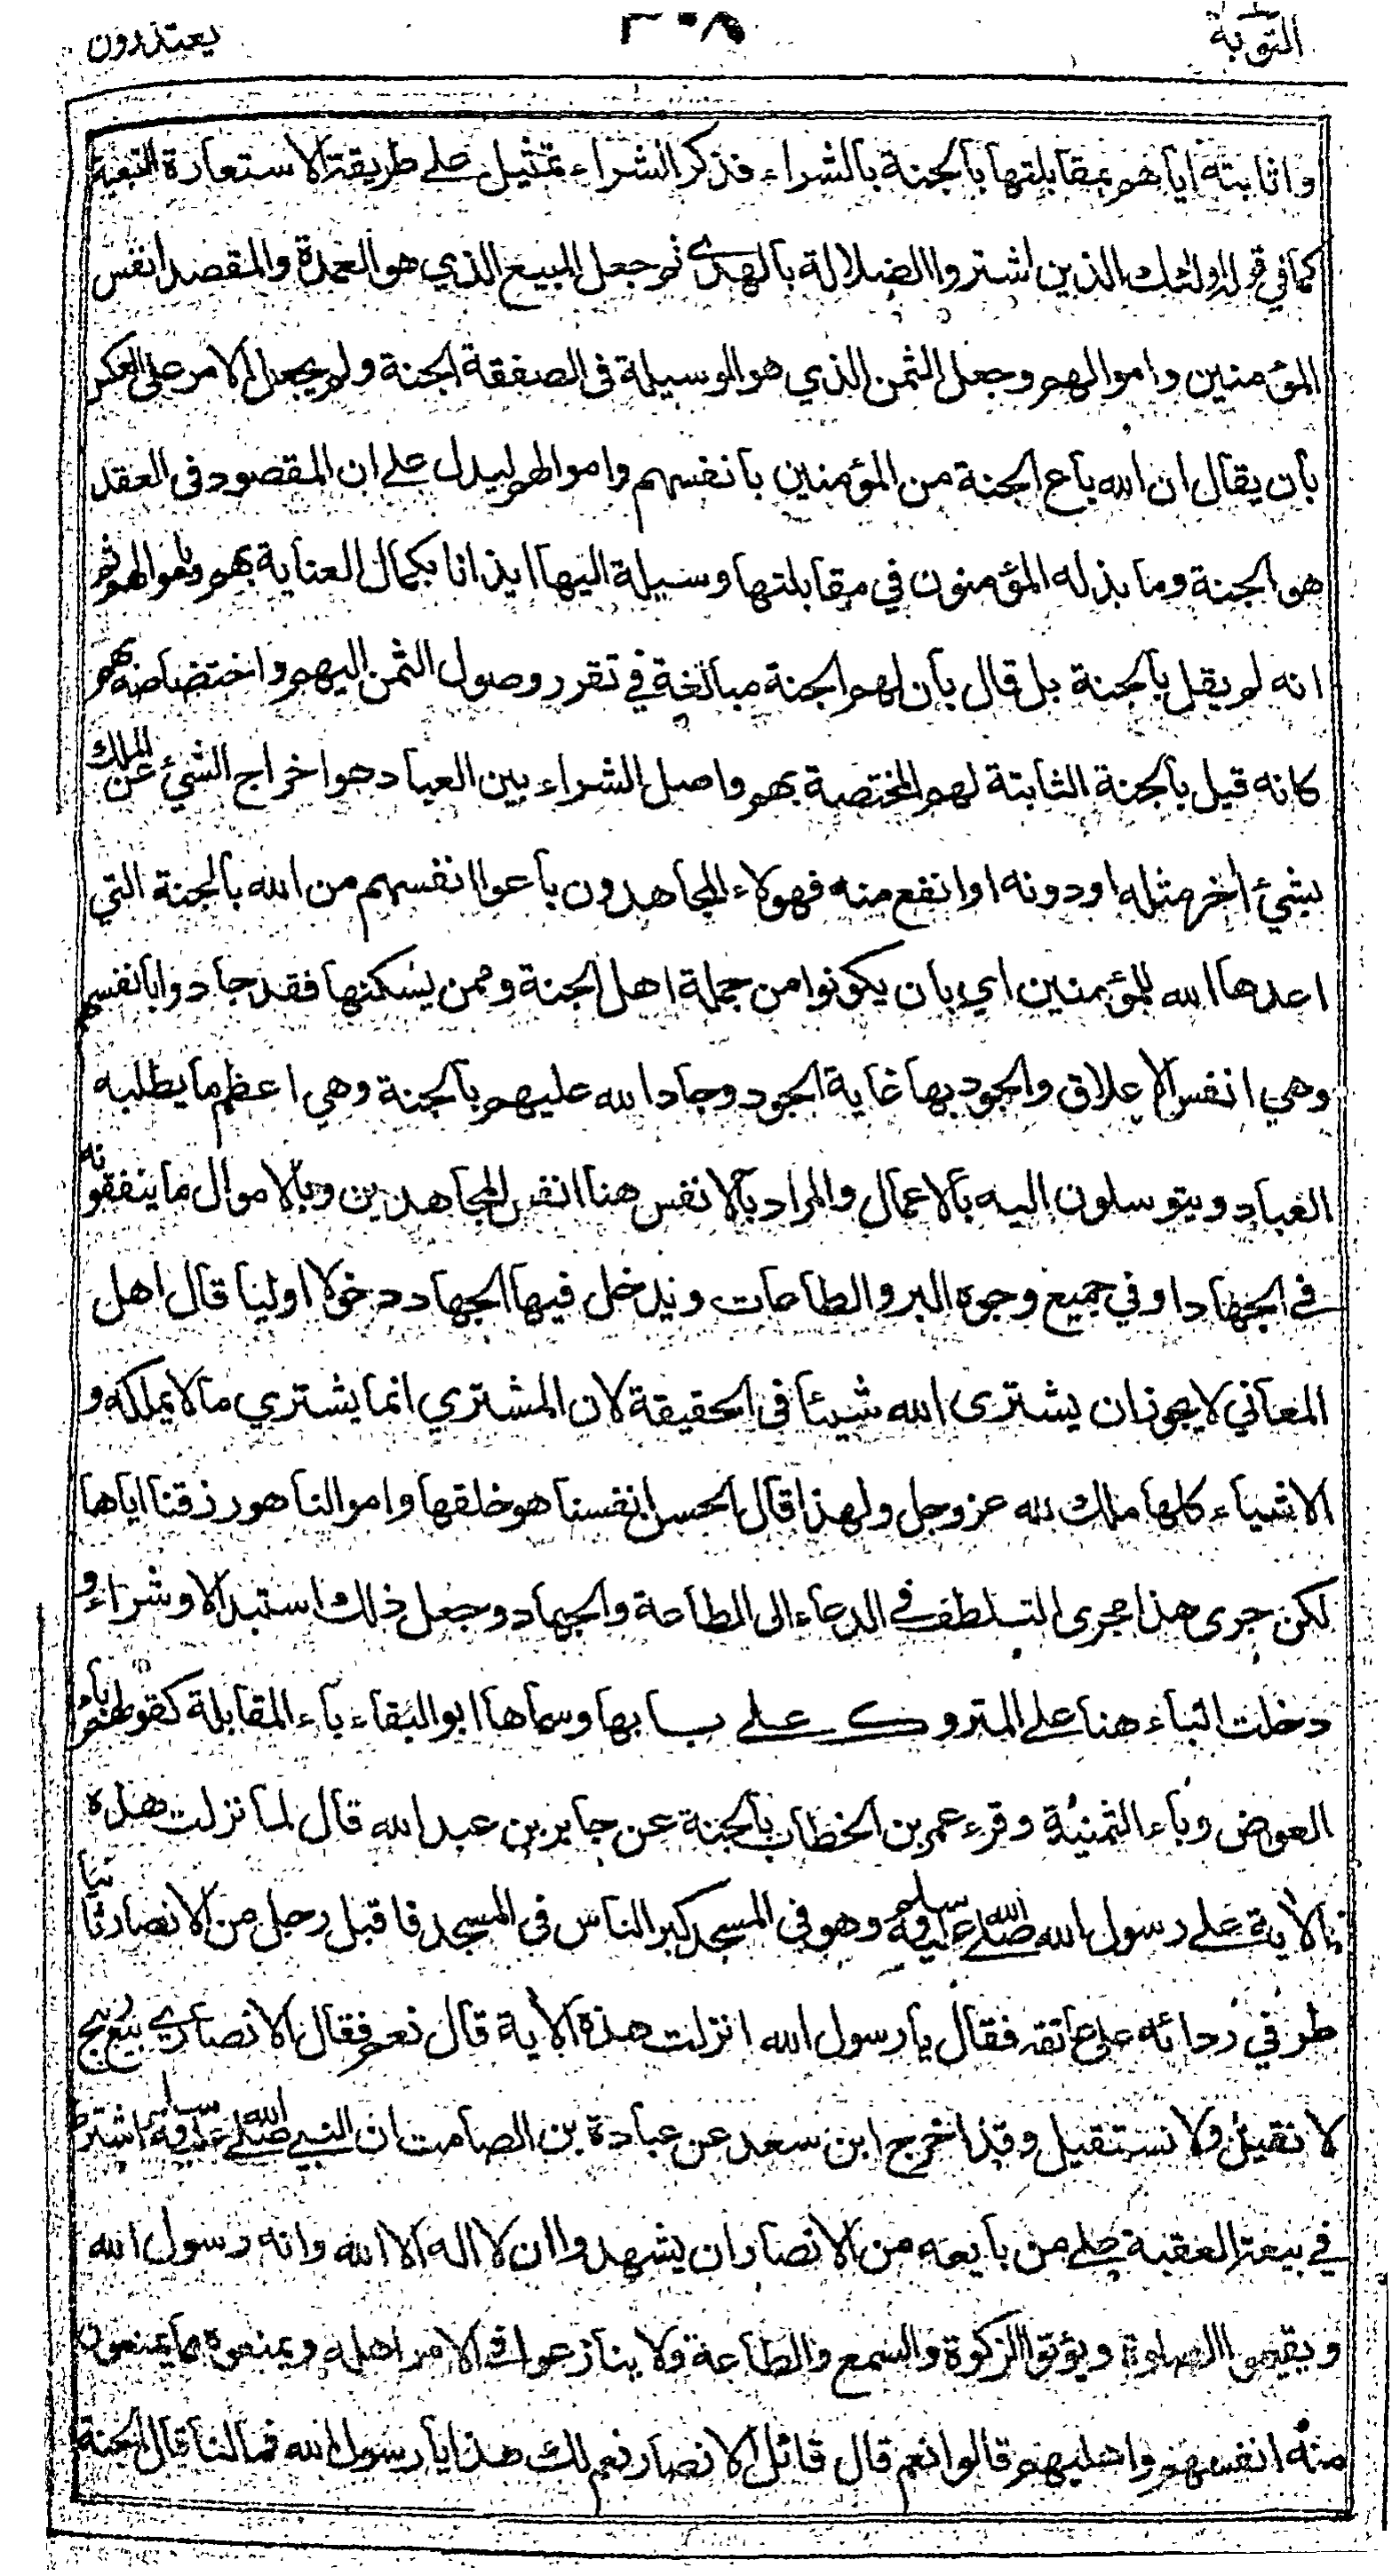 التوبة ٣٠٨ يعتذرون
واثابته اياهم بمقابلتها بالجنة بالشراء فذكر الشراء تمثيل على طريقة الاستعارة التبعية
كما في قوله اولئك الذين اشتروا الضلالة بالهدى ثم جعل المبيع الذي هو العمدة والمقصد انفس
المؤمنين واموالهم وجعل الثمن الذي هو الوسيلة فى الصفقة الجنة ولم يجعل الامر على العكس
بان يقال ان الله باع الجنة من المؤمنين بانفسهم واموالهم ليدل على ان المقصود فى العقد
هو الجنة وما بذله المؤمنون في مقابلتها وسيلة اليها ايذانا بكمال العناية بهم وباموالهم ثم
انه لم يقل بالجنة بل قال بان لهم الجنة مبالغة في تقرر وصول الثمن اليهم واختصاصه بهم
كانه قيل بالجنة الثابتة لهم المختصة بهم واصل الشراء بين العباد هو اخراج الشئ عن الملك
بشئ أخر مثله او دونه او انفع منه فهولاء المجاهدون باعوا انفسهم من الله بالجنة التي
اعدها الله للمؤمنين اي بان يكونوا من جملة اهل الجنة وممن يسكنها فقد جادوا بانفسهم
وهي انفس الاعلاق والجود بها غاية الجود وجاد الله عليهم بالجنة وهي اعظم ما يطلبه
العباد ويتوسلون اليه بالاعمال والمراد بالانفس هنا انفس المجاهدين وبالاموال ما ينفقونه
في الجهاد او في جميع وجوه البر والطاعات ويدخل فيها الجهاد دخولا اوليا قال اهل
المعاني لا يجوز ان يشترى الله شيئا فى الحقيقة لان المشتري انما يشتري مالا يملكه و
الاشياء كلها ملك لله عز وجل ولهذا قال الحسن انفسنا هو خلقها واموالنا هو رزقنا اياها
لكن جرى هذا مجرى التلطف في الدعاء الى الطاعة والجهاد وجعل ذلك استبدالا وشراء و
دخلت الباء هنا على المتروك على بابها وسماها ابو البقاء باء المقابلة كقولهم باء
العوض وباء الثمنية وقرء عمر بن الخطاب بالجنة عن جابر بن عبد الله قال لما نزلت هذه
الاية على رسول الله صلى الله عليه وسلم وهو في المسجد كبر الناس فى المسجد فاقبل رجل من الانصار ثانيا
طرفي ردائه على عاتقه فقال يا رسول الله انزلت هذه الاية قال نعم فقال الانصاري بيع ربيح
لا نقيل ولا نستقيل وقد اخرج ابن سعد عن عبادة بن الصامت ان النبي صلى الله عليه وسلم اشترط
في بيعة العقبة على من بايعه من الانصار ان يشهدوا ان لا اله الا الله وانه رسول الله
ويقيموا الصلوة ويؤتوا الزكوة والسمع والطاعة ولا ينازعوا في الامر اهله ويمنعوه مما يمنعون
منه انفسهم واهليهم قالوا نعم قال قائل الانصار نعم لك هذا يا رسول الله فما لنا قال الجنة